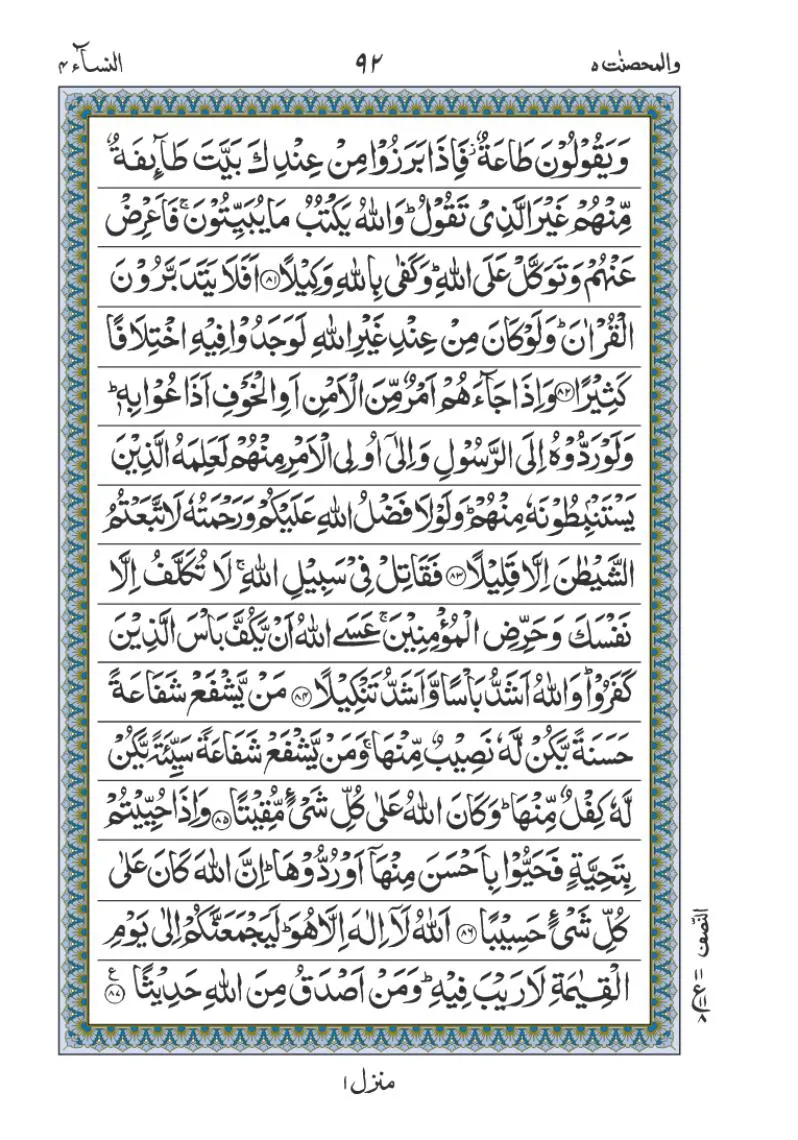 والمحصنٰت ۵ ۹۲ النسآء ۴
وَيَقُوۡلُوۡنَ طَاعَةٌ‌ فَاِذَا بَرَزُوۡا مِنۡ عِنۡدِكَ بَيَّتَ طَآٮِٕفَةٌ
مِّنۡهُمۡ غَيۡرَ الَّذِىۡ تَقُوۡلُ‌ؕ وَاللّٰهُ يَكۡتُبُ مَا يُبَيِّتُوۡنَ‌ۚ فَاَعۡرِضۡ
عَنۡهُمۡ وَتَوَكَّلۡ عَلَى اللّٰهِ‌ؕ وَكَفٰى بِاللّٰهِ وَكِيۡلًا‏ ﴿۸۱﴾ اَفَلَا يَتَدَبَّرُوۡنَ
الۡقُرۡاٰنَ‌ؕ وَلَوۡ كَانَ مِنۡ عِنۡدِ غَيۡرِ اللّٰهِ لَوَجَدُوۡا فِيۡهِ اخۡتِلَافًا
كَثِيۡرًا‏ ﴿۸۲﴾ وَاِذَا جَآءَهُمۡ اَمۡرٌ مِّنَ الۡاَمۡنِ اَوِ الۡخَوۡفِ اَذَاعُوۡا بِهٖ‌ؕ
وَلَوۡ رَدُّوۡهُ اِلَى الرَّسُوۡلِ وَاِلٰٓى اُولِى الۡاَمۡرِ مِنۡهُمۡ لَعَلِمَهُ الَّذِيۡنَ
يَسۡتَنۡۢبِطُوۡنَهٗ مِنۡهُمۡ‌ؕ وَلَوۡلَا فَضۡلُ اللّٰهِ عَلَيۡكُمۡ وَرَحۡمَتُهٗ لَاتَّبَعۡتُمُ
الشَّيۡطٰنَ اِلَّا قَلِيۡلًا‏ ﴿۸۳﴾ فَقَاتِلۡ فِىۡ سَبِيۡلِ اللّٰهِ‌ۚ لَا تُكَلَّفُ اِلَّا
نَفۡسَكَ‌ وَحَرِّضِ الۡمُؤۡمِنِيۡنَ‌ۚ عَسَى اللّٰهُ اَنۡ يَّكُفَّ بَاۡسَ الَّذِيۡنَ
كَفَرُوۡا‌ؕ وَاللّٰهُ اَشَدُّ بَاۡسًا وَّاَشَدُّ تَنۡكِيۡلًا‏ ﴿۸۴﴾ مَنۡ يَّشۡفَعۡ شَفَاعَةً
حَسَنَةً يَّكُنۡ لَّهٗ نَصِيۡبٌ مِّنۡهَا‌ۚ وَمَنۡ يَّشۡفَعۡ شَفَاعَةً سَيِّئَةً يَّكُنۡ
لَّهٗ كِفۡلٌ مِّنۡهَا‌ؕ وَكَانَ اللّٰهُ عَلٰى كُلِّ شَىۡءٍ مُّقِيۡتًا‏ ﴿۸۵﴾ وَاِذَا حُيِّيۡتُمۡ
بِتَحِيَّةٍ فَحَيُّوۡا بِاَحۡسَنَ مِنۡهَاۤ اَوۡ رُدُّوۡهَا‌ؕ اِنَّ اللّٰهَ كَانَ عَلٰى
كُلِّ شَىۡءٍ حَسِيۡبًا‏ ﴿۸۶﴾ اَللّٰهُ لَاۤ اِلٰهَ اِلَّا هُوَ‌ؕ لَيَجۡمَعَنَّكُمۡ اِلٰى يَوۡمِ
الۡقِيٰمَةِ لَا رَيۡبَ فِيۡهِ‌ؕ وَمَنۡ اَصۡدَقُ مِنَ اللّٰهِ حَدِيۡثًا‏ ﴿۸۷﴾ ع
النّصف
منزل ۱